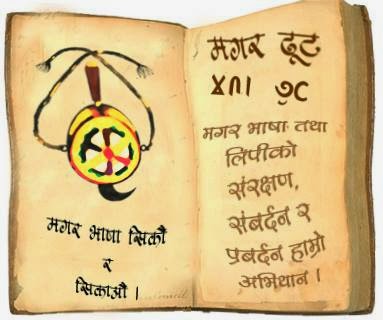 मगर भाषा सिकौ
र
सिकाऔ ।
मगर ढूट
𑀫𑀕𑀭
मगर भाषा तथा
लिपीको
संरक्षण,
संबर्दन र
प्रबर्दन हाम्रो
अभियान ।